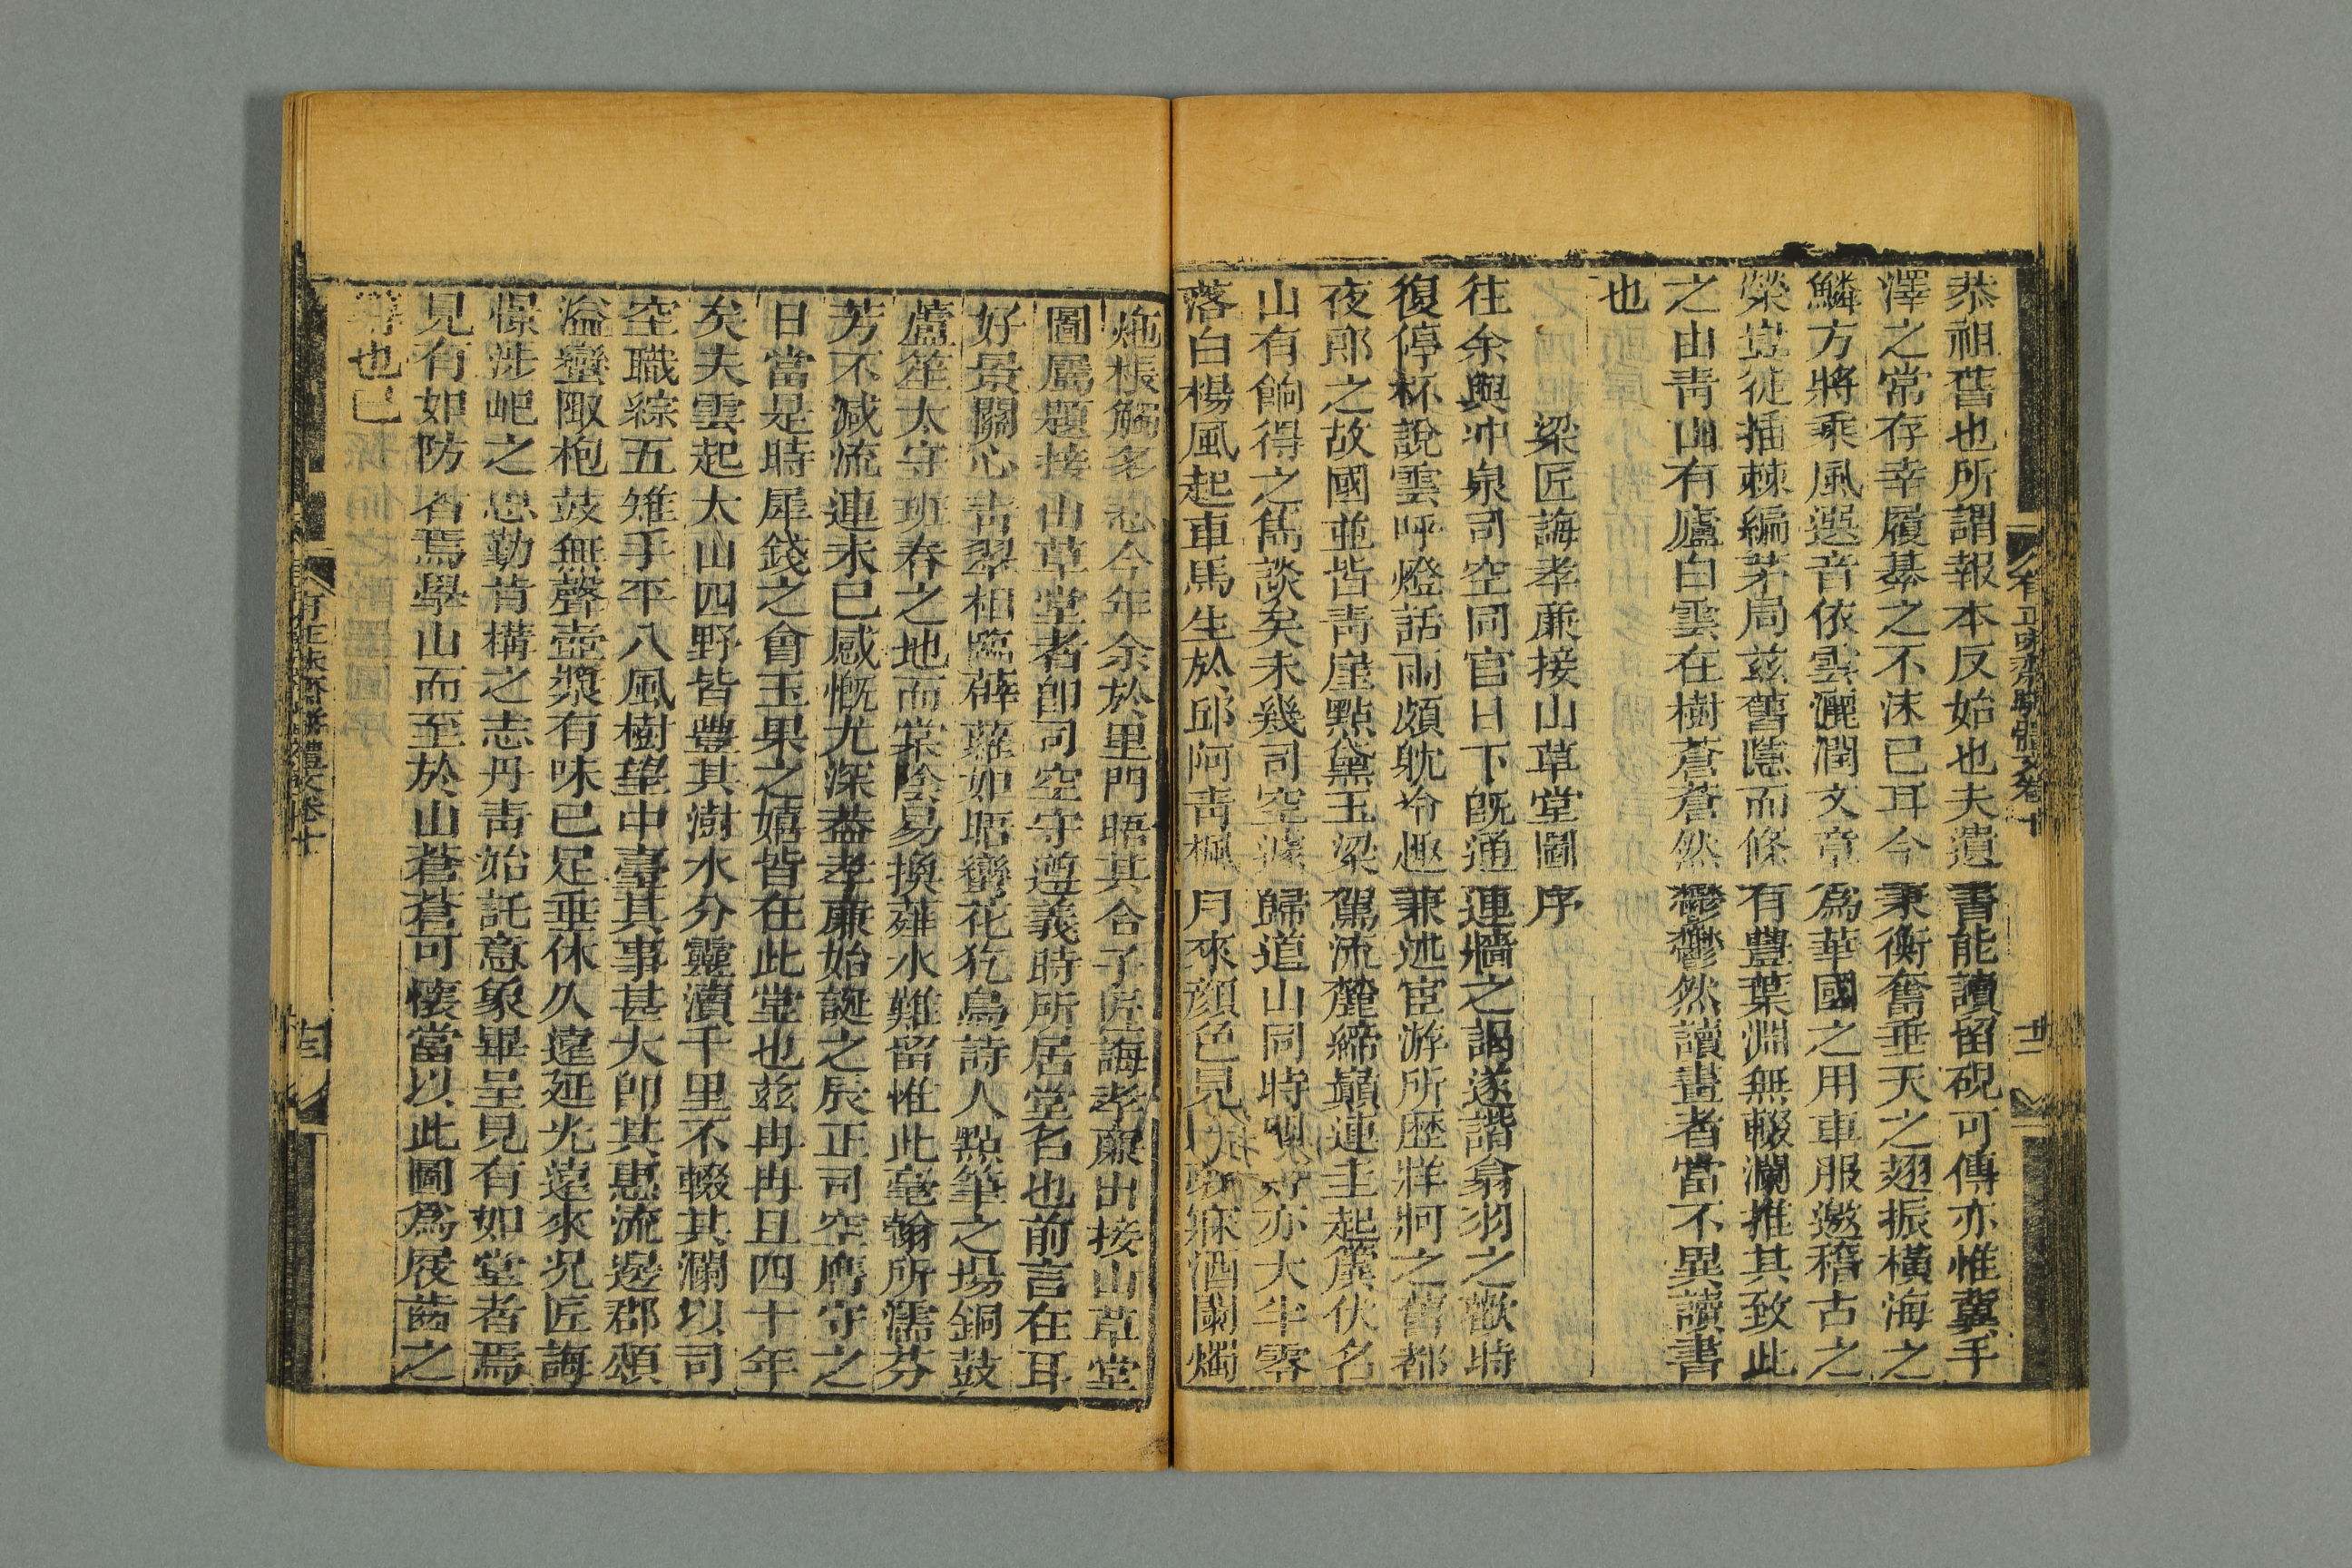 恭祖舊也所謂報本反始也夫遺書能讀留硯可傳亦惟冀手
澤之常存幸履綦之不沫已耳今秉衡奮垂天之翅振橫海之
鱗方將乘風選音依雲灑潤文章爲華國之用車服邀稽古之
榮豈徒插棘編茅局茲舊隱而條有豐葉淵無輟瀾推其致此
之由靑山有廬白雲在樹蒼蒼然鬱鬱然讀畫者當不異讀書
也
梁匠誨孝廉接山草堂圖序
往余與冲泉司空同官日下旣通連牆之謁遂諧翕羽之歡時
復停杯說雲呼燈話雨頗躭冷趣兼述宦游所歷牂牁之舊都
夜郎之故國並皆靑崖點黛玉梁駕流麓締巔連圭起簴伏名
山有餉得之雋談矣未幾司空歸道山同時亦大半零
落白楊風起車馬生於邱阿靑楓月來顏色見酒闌燭
炧棖觸多悲今年余於里門晤其合子匠誨孝廉出接山草堂
圖屬題接山草堂者卽司空守遵義時所居堂名也前言在耳
好景關心靑翠相臨薜蘿如晤蠻花犵鳥詩人點筆之場銅鼓
蘆笙太守班春之地而棠陰易換薤水難留惟此毫翰所濡芬
芳不減流連未已感慨尤深葢孝廉始誕之辰正司空膺守之
日當是時犀錢之會玉果之嬉皆在此堂也茲冉冉且四十年
矣夫雲起太山四野皆豐其澍水分靈瀆千里不輟其瀾以司
空職綜五雉手平八風樹望中臺其事甚大卽其惠流邊郡頌
溢蠻陬枹鼓無聲壺漿有味已足垂休久遠延光遠來況匠誨
憬涉岵之思勤肯構之志丹靑始託意象畢呈見有如堂者焉
見有如防者焉學山而至於山蒼蒼可懷當以此圖爲屐齒之
也已
有正味齋駢體文卷十
廿二
有正味齋駢體文卷十
廿三